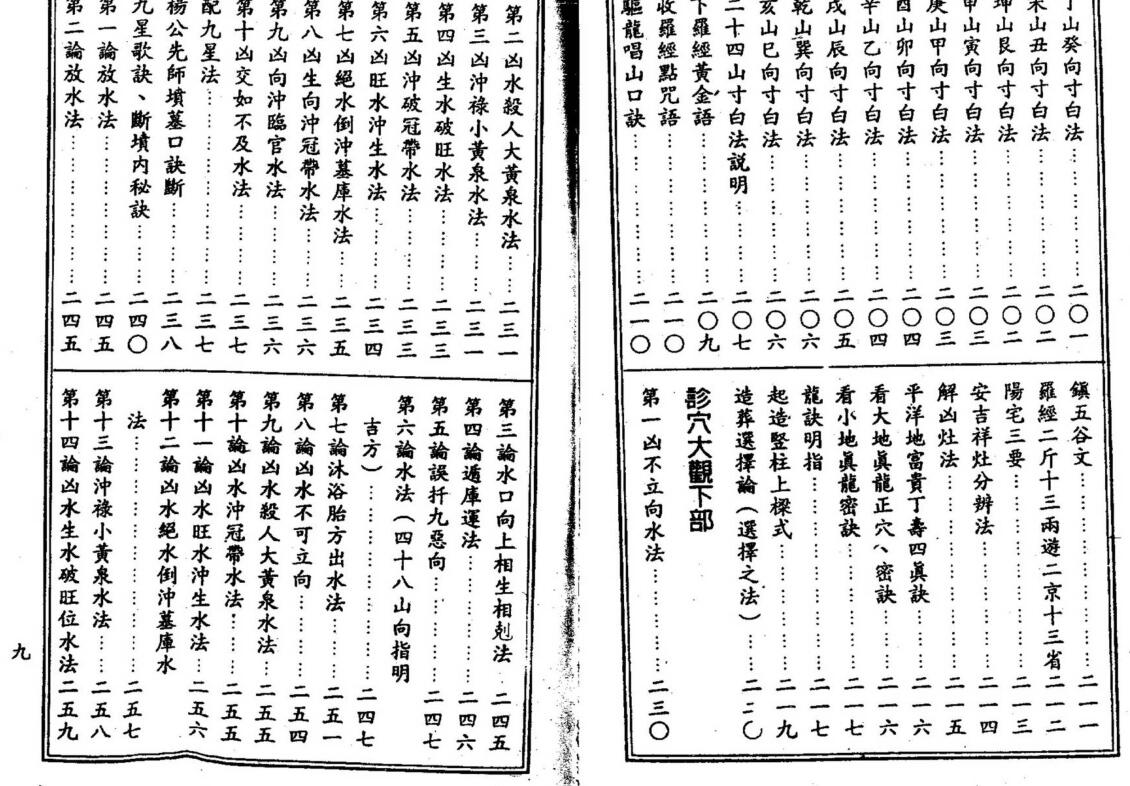 丁山癸向寸白法……二〇一
未山丑向寸白法……二〇二
坤山艮向寸白法……二〇二
申山寅向寸白法……二〇三
庚山甲向寸白法……二〇三
酉山卯向寸白法……二〇四
辛山乙向寸白法……二〇四
戌山辰向寸白法……二〇五
乾山巽向寸白法……二〇六
亥山巳向寸白法……二〇六
二十四山寸白法説明……二〇七
下羅經黃金語……二〇九
收羅經點咒語……二一〇
驅龍唱山口訣……二一〇
鎮五谷文……二一一
羅經二斤十三兩遊二京十三省二一二
陽宅三要……二一三
安吉祥灶分辨法……二一四
解凶灶法……二一五
平洋地富貴丁壽四眞訣……二一六
看大地眞龍正穴、密訣……二一六
看小地眞龍密訣……二一七
龍訣明指……二一七
起造竪柱上樑式……二一九
造葬選擇論(選擇之法)……二二〇
診穴大觀下部
第一凶不立向水法……二三〇
第二凶水殺人大黃泉水法……二三一
第三凶沖祿小黃泉水法……二三一
第四凶生水破旺水法……二三三
第五凶沖破冠帶水法……二三三
第六凶旺水沖生水法……二三四
第七凶絕水倒沖墓庫水法……二三五
第八凶生向沖冠帶水法……二三六
第九凶向沖臨官水法……二三六
第十凶交如不及水法……二三七
配九星法……二三七
楊公先師墳墓口訣斷……二三八
九星歌訣、斷墳內秘訣……二四〇
第一論放水法……二四五
第二論放水法……二四五
第三論水口向上相生相剋法……二四五
第四論遁庫運法……二四六
第五論誤扦九惡向……二四七
第六論水法(四十八山向指明
吉方)……二四七
第七論沐浴胎方出水法……二五一
第八論凶水不可立向……二五四
第九論凶水殺人大黃泉水法……二五五
第十論凶水沖冠帶水法……二五五
第十一論凶水旺水沖生水法……二五六
第十二論凶水絕水倒沖墓庫水
法……二五七
第十三論沖祿小黃泉水法……二五八
第十四論凶水生水破旺位水法二五九
九